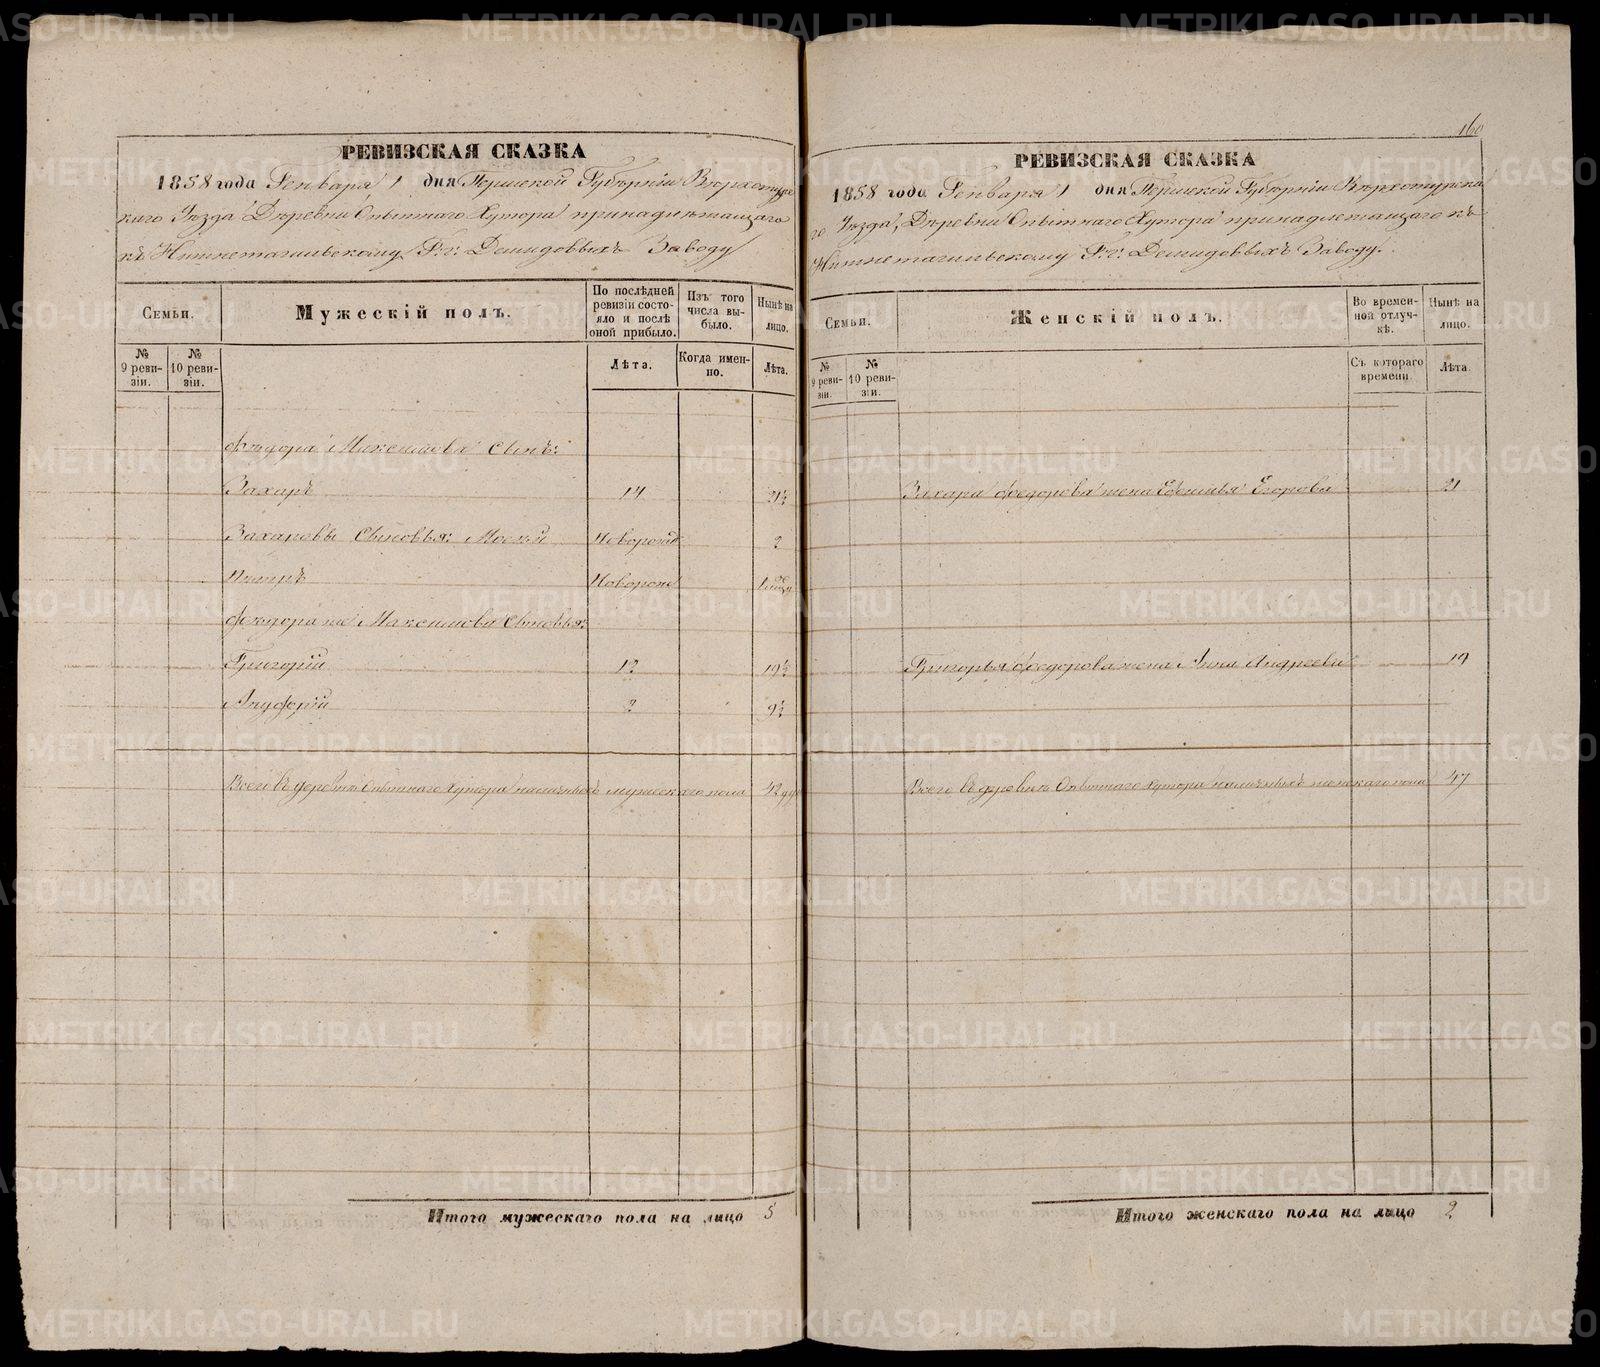 РЕВИЗСКАЯ СКАЗКА
1858 года Генваря 1 дня Пермской Губернiи Верхотурс
каго Уѣзда Деревни Опытнаго Хутора принадлежащаго
къ Нижнетагильскому Г.г. Демидовыхъ Заводу
Семьи.
Мужескiй полъ.
По послѣдней ревизiи состояло и послѣ оной прибыло.
Изъ того числа выбыло.
Нынѣ на лицо.
№ 9 ревизiи.
№ 10 ревизiи.
Лѣта.
Когда именно.
Лѣта.
Федора Максимова Сынъ:
Захаръ 14 21½
Захаровы Сыновья: Мосей Новорож 2
Петръ Новорож
Федора же Максимова Сыновья:
Григорiй 12 19½
Ануфрiй 2 9½
Всего въ деревнѣ Опытнаго Хутора наличныхъ мужескаго пола 42
Итого мужескаго пола на лицо 5
160
РЕВИЗСКАЯ СКАЗКА
1858 года Генваря 1 дня Пермской Губернiи Верхотурска
го Уѣзда, Деревни Опытнаго Хутора принадлежащаго къ
Нижнетагильскому Г.г. Демидовыхъ Заводу.
Семьи.
Женскiй полъ.
Во временной отлучкѣ.
Нынѣ на лицо.
№ 9 ревизiи.
№ 10 ревизiи.
Съ котораго времени.
Лѣта.
Захара Федорова жена Егорова 21
Григорья Федорова жена Анна Андреева 19
Всего въ деревнѣ Опытнаго Хутора наличныхъ женскаго пола 47
Итого женскаго пола на лицо 2
METRIKI.GASO-URAL.RU